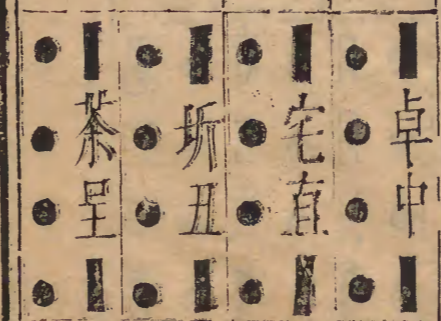 卓中
宅直
坼丑
茶呈